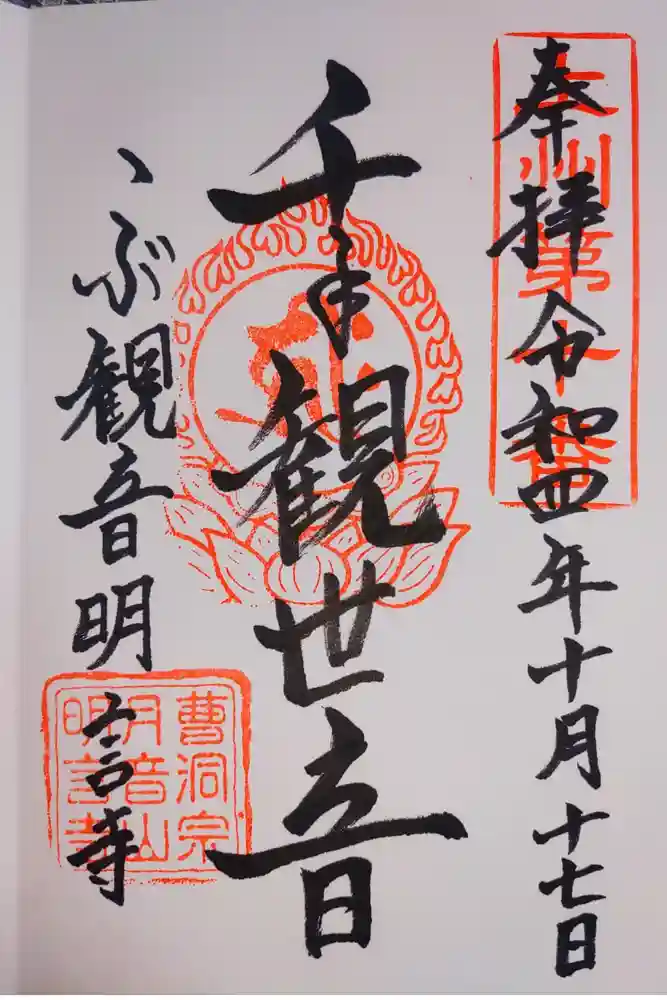 奉拝 令和四年十月十七日
千手観世音
こぶ観音明言寺
曹洞宗
月音山
明言寺